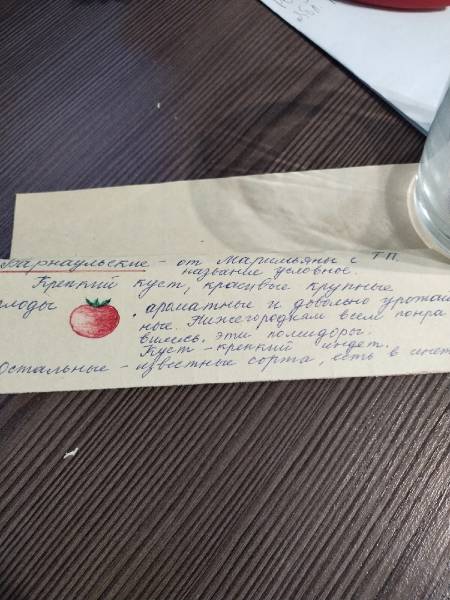 Барнаульские - от Маримьяны с ТП.
название условное.
Крепкий куст, красивые крупные
плоды , ароматные и довольно урожай
ные. Нижегородкам всем понра
вились эти помидоры.
Куст - крепкий индет.
Остальные - известные сорта, есть в инет